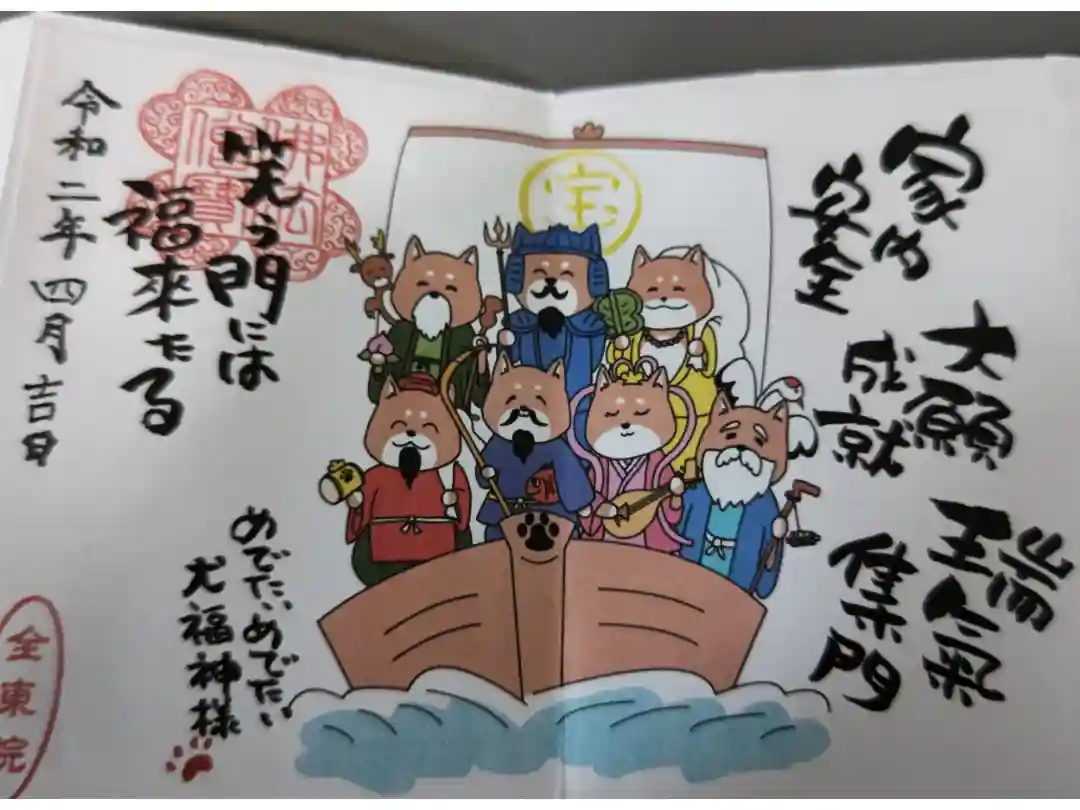 家内
安全
大願
成就
瑞氣
集門
宝
笑う門には
福来たる
めでたいめでたい
犬福神様
佛法
僧寶
令和二年四月吉日
全東院